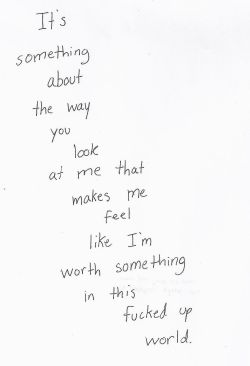 It's
something
about
the way
you
look
at me that
makes me
feel
like I'm
worth something
in this
fucked up
world.